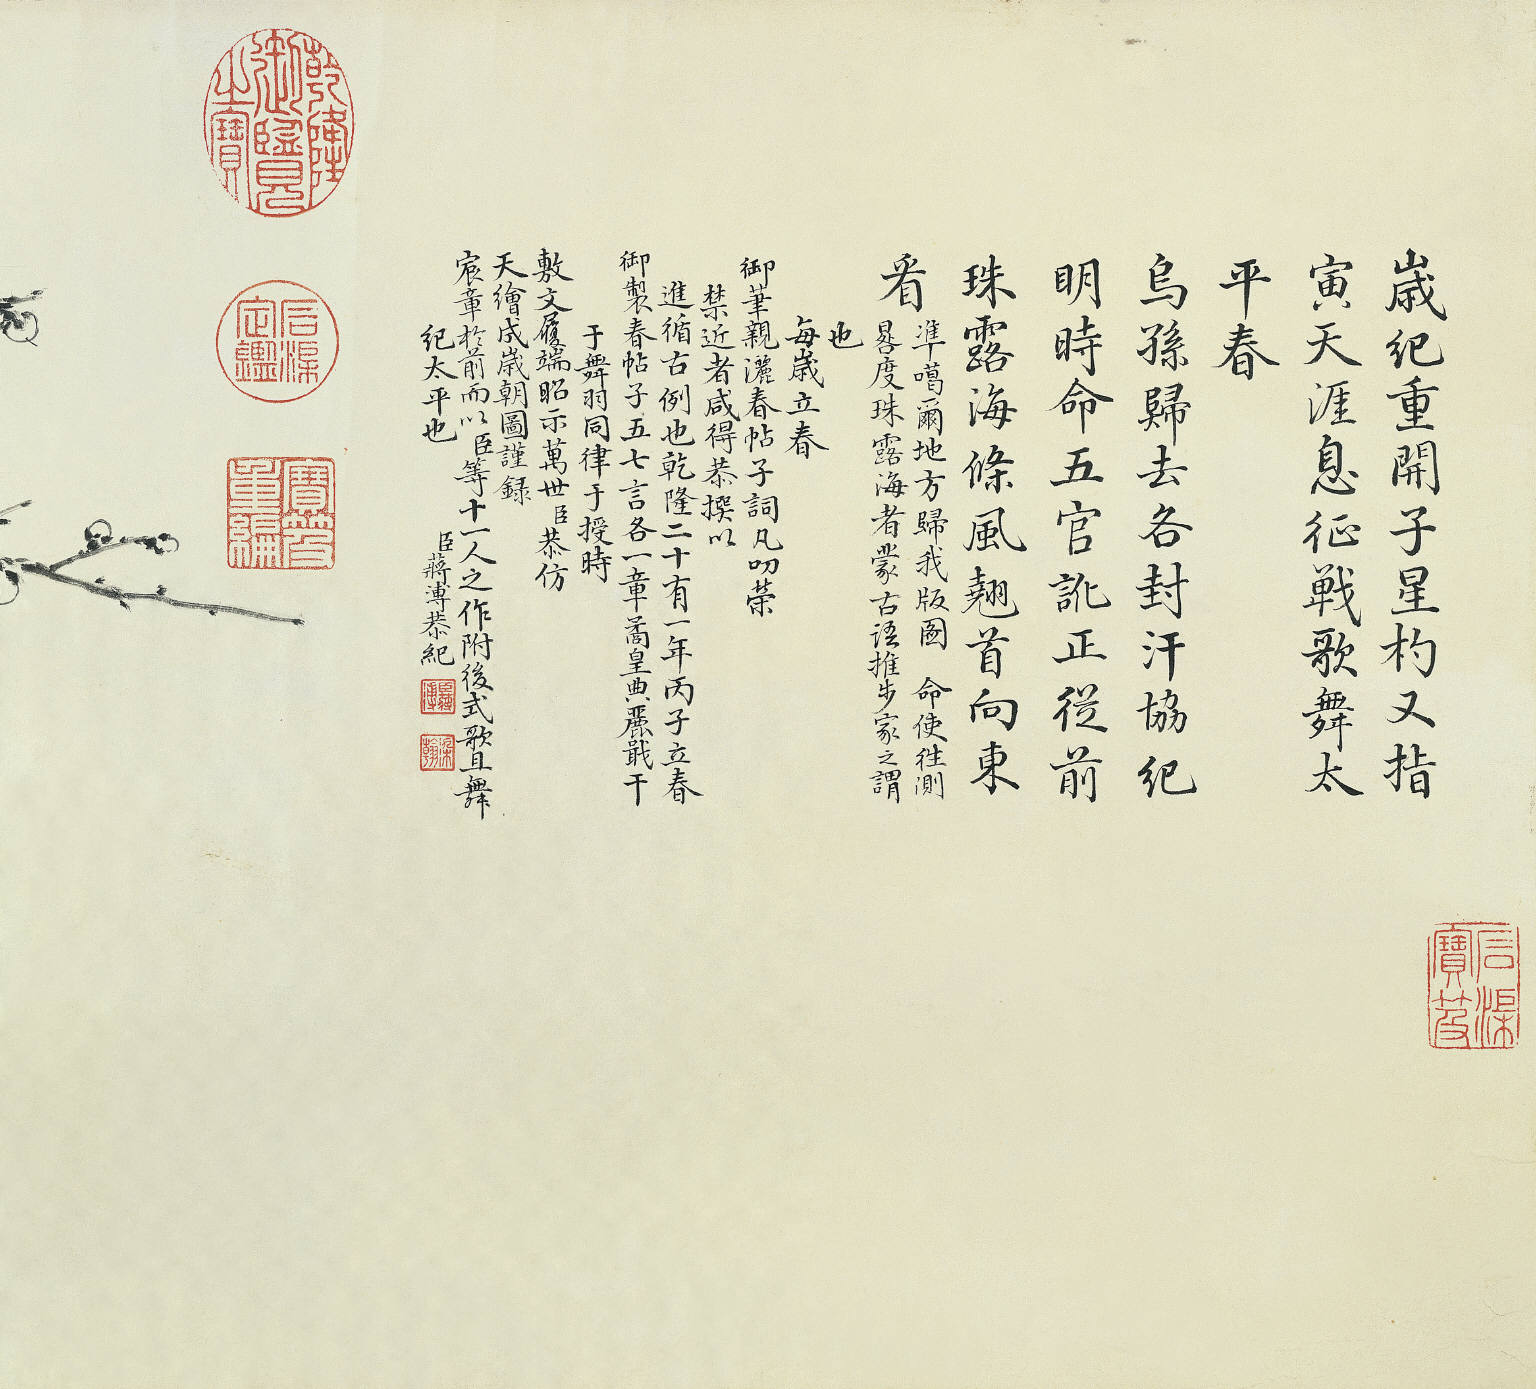 歲紀重開子星杓又指
寅天涯息征戰歌舞太
平春
烏孫歸去各封汗協紀
明時命五官訛正從前
珠露海條風翹首向東
看
準噶爾地方歸我版圖 命使徃測
晷度珠露海者蒙古語推步家之謂
也
每歲立春
御筆親灑春帖子詞凡叨榮
禁近者咸得恭撰以
進循古例也乾隆二十有一年丙子立春
御製春帖子五七言各一章矞皇典麗戢干
于舞羽同律于授時
敷文履端昭示萬世臣恭仿
天繪成歲朝圖謹録
宸章於前而以臣等十一人之作附後式歌且舞
紀太平也
臣蔣溥恭紀
臣蔣溥
染翰
乾隆御覽之寶
石渠定鑑
寶笈重編
石渠寶笈